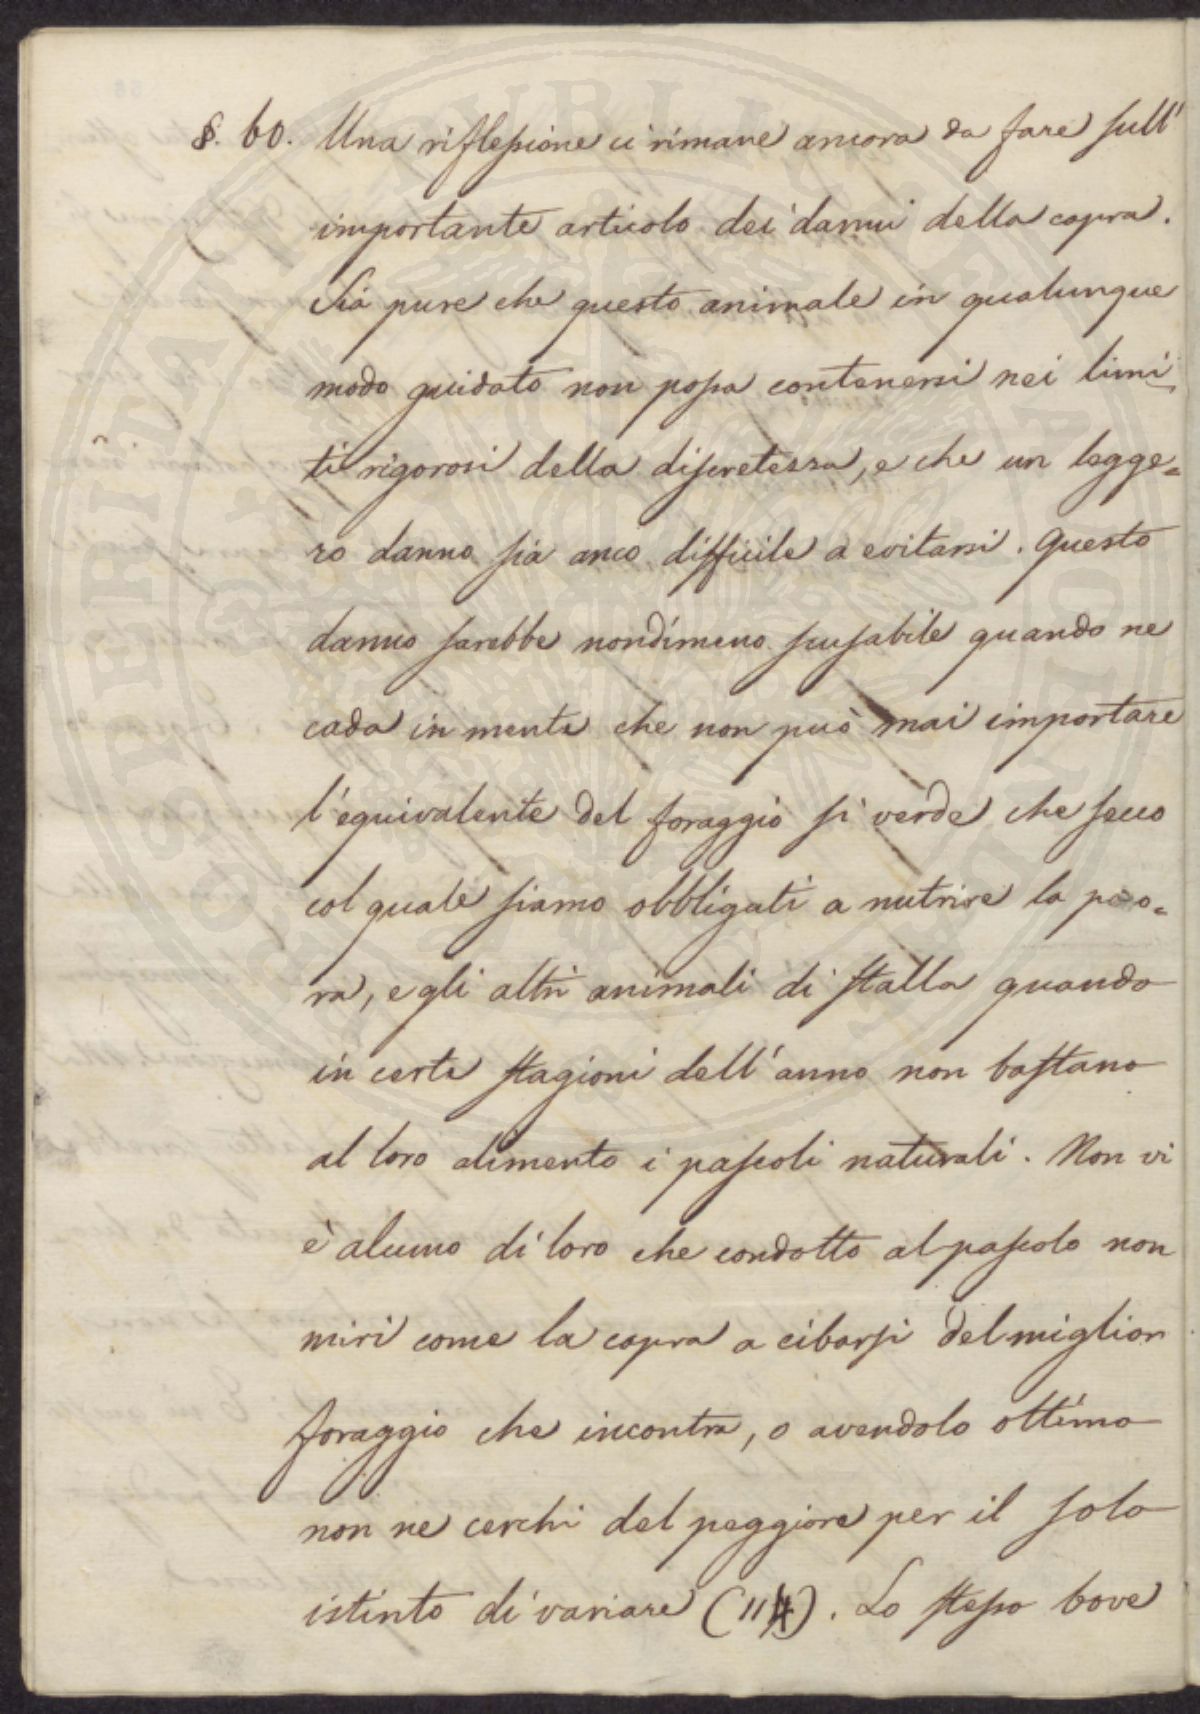 §. 60. Una riflessione ci rimane ancora da fare sull'
importante articolo dei danni della capra.
Sia pure che questo animale in qualunque
modo guidato non possa contenersi nei limi-
ti rigorosi della discretezza, e che un legge=
ro danno sia anco difficile a evitarsi. Questo
danno sarebbe nondimeno scusabile quando ne
cada in mente che non può mai importare
l'equivalente del foraggio sì verde che secco
col quale siamo obbligati a nutrire la peco=
ra, e gli altri animali di stalla quando
in certe stagioni dell'anno non bastano
al loro alimento i pascoli naturali. Non vi
è alcuno di loro che condotto al pascolo non
miri come la capra a cibarsi del miglior
foraggio che incontra, o avendolo ottimo
non ne cerchi del peggiore per il solo
istinto di variare (114). Lo stesso bove
PUBLICAE
PROSPERITATI